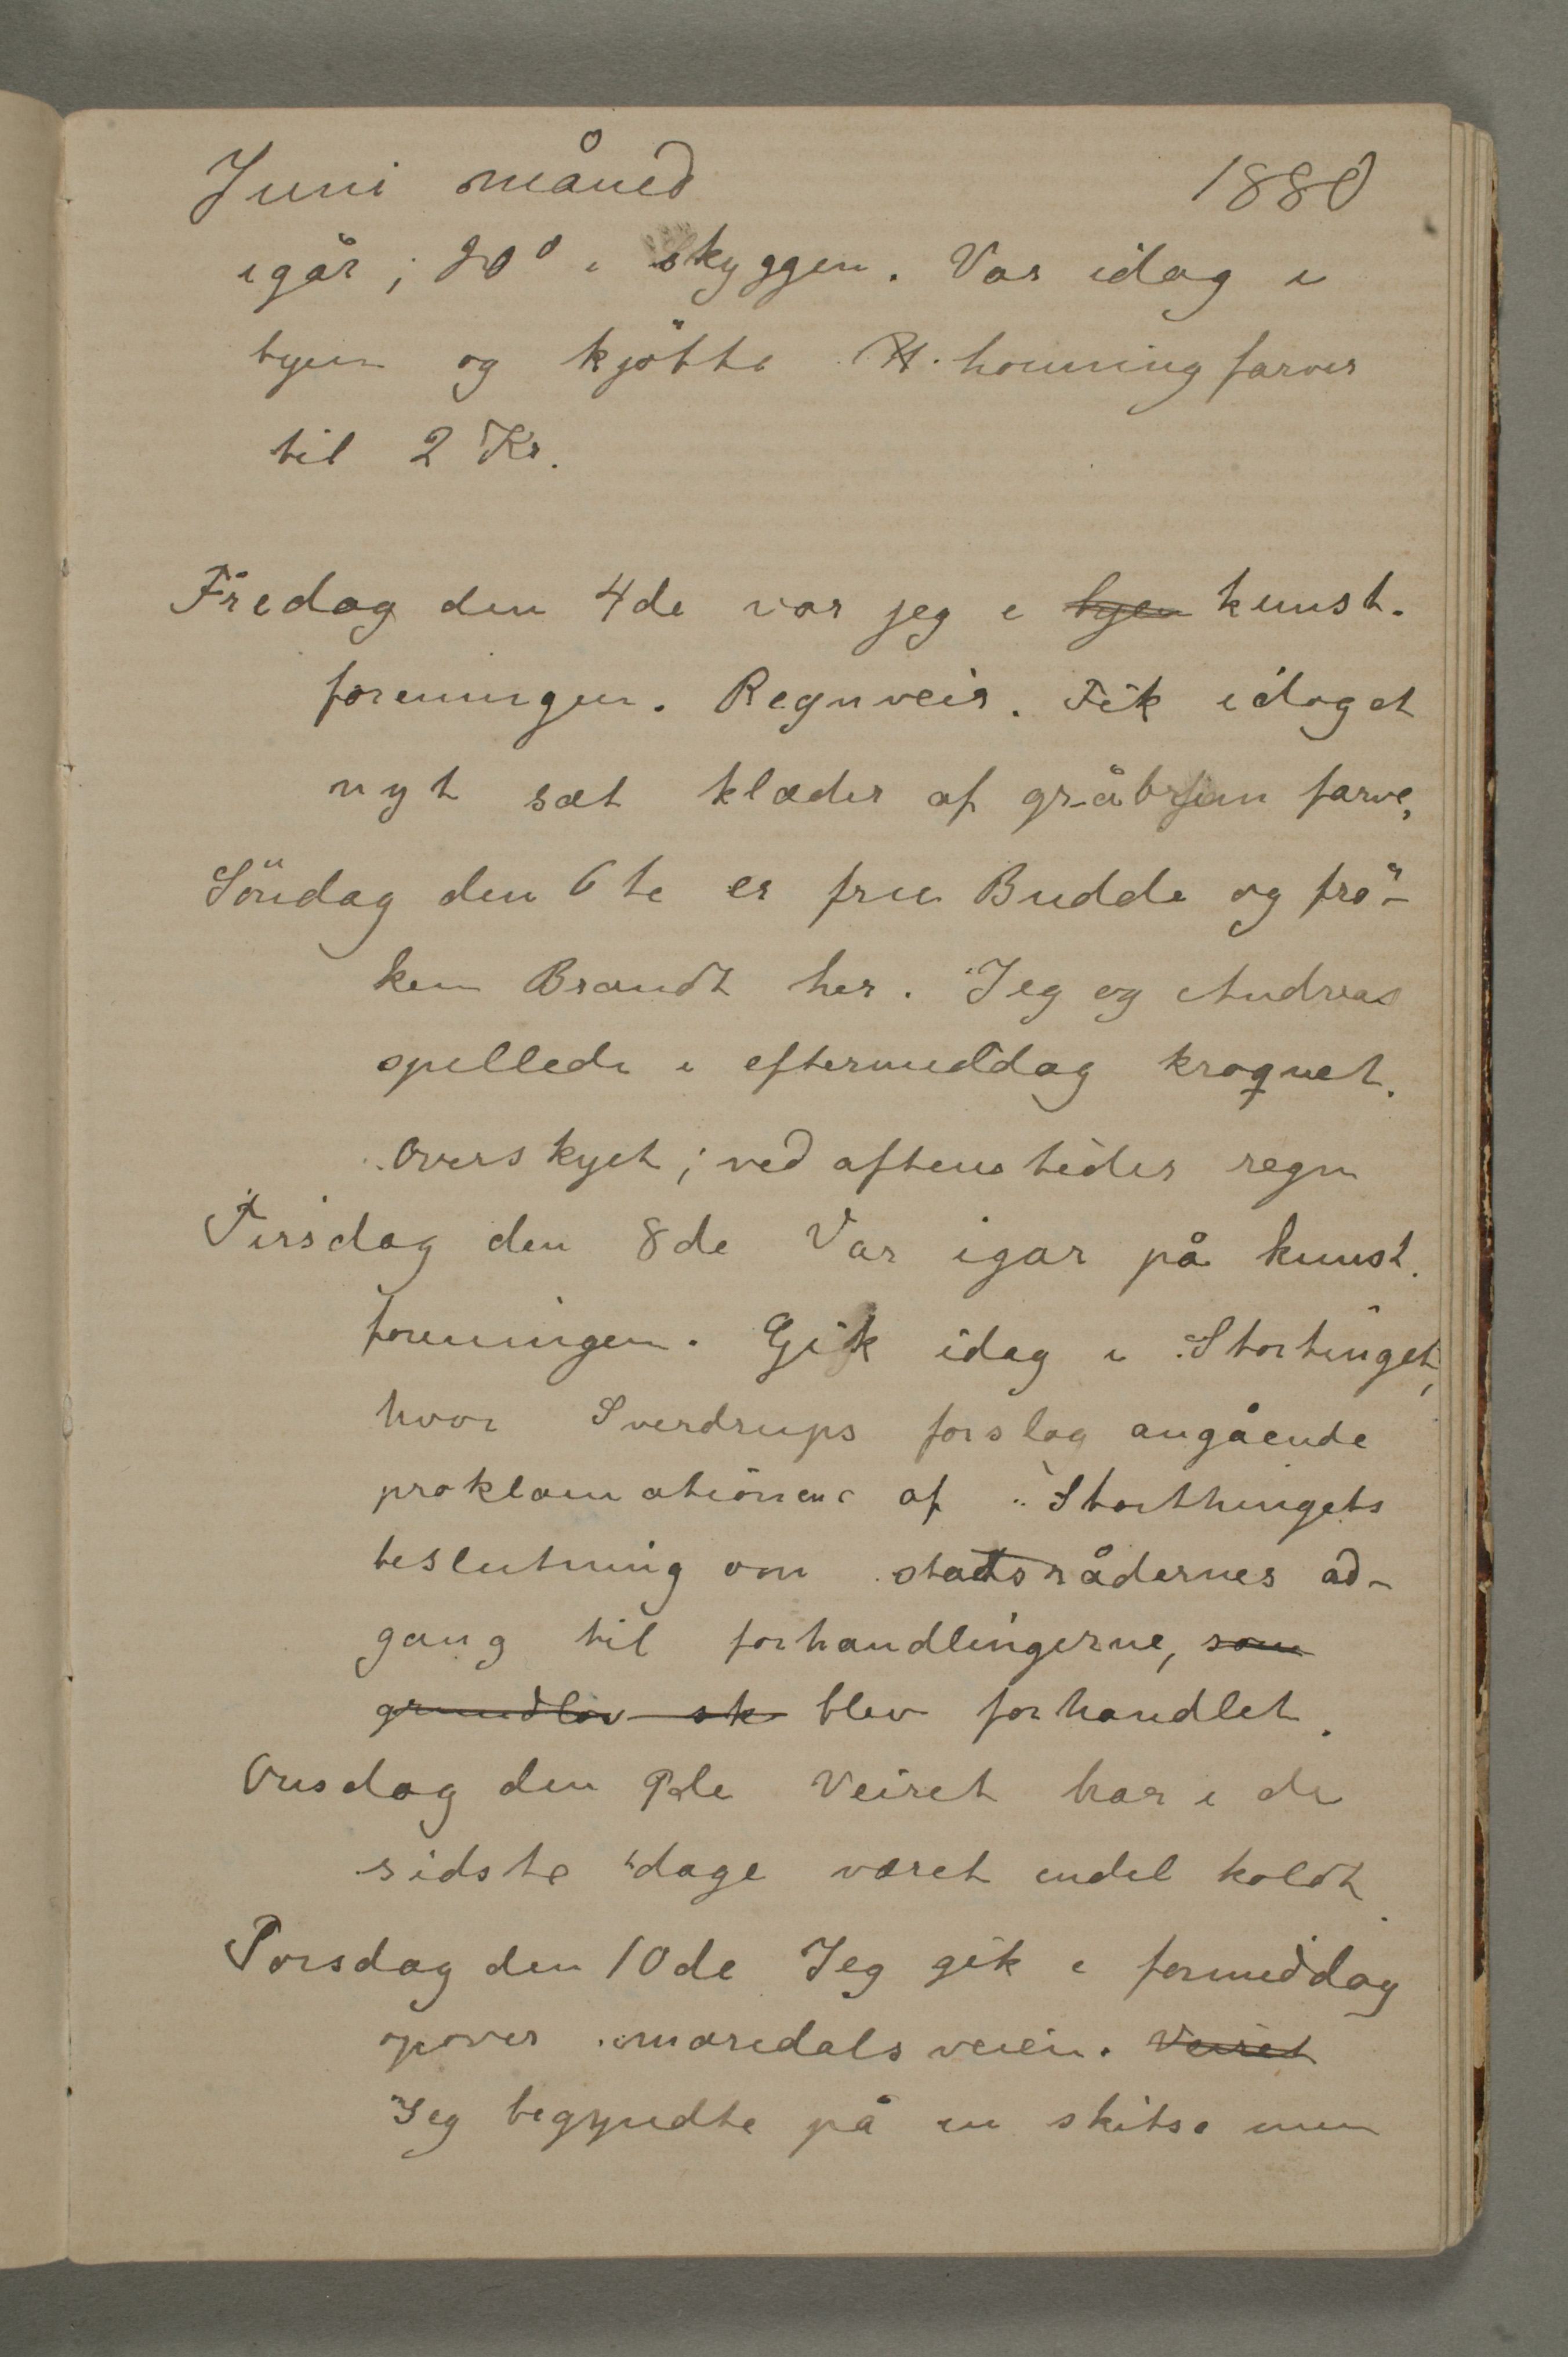 Juni måned 1880
igår; 20° i skyggen. Var idag i
byen og kjöbte honningfarver
til 2 Kr.
Fredag den 4de var jeg i byen kunst-
foreningen. Regnveir. Fik idag et
nyt sæt klæder af gråbrun farve,
Söndag den 6te er fru Budde og frö-
ken Brandt her. Jeg og Andreas
spillede i eftermiddag kroquet.
Overskyet; ved aftenstider regn
Tirsdag den 8de Var igar på kunst.
foreningen. Gik idag i Stortinget,
hvor Sverdrups forslag angående
proklamationen af Storthingets
beslutning om statsrådernes ad-
gang til forhandlingerne, som
grundlov sk blev forhandlet.
Onsdag den 9de Veiret har i de
sidste dage været endel koldt.
Torsdag den 10de Jeg gik i formiddag
opover maridalsveien. Veiret
Jeg begyndte på en skitse men